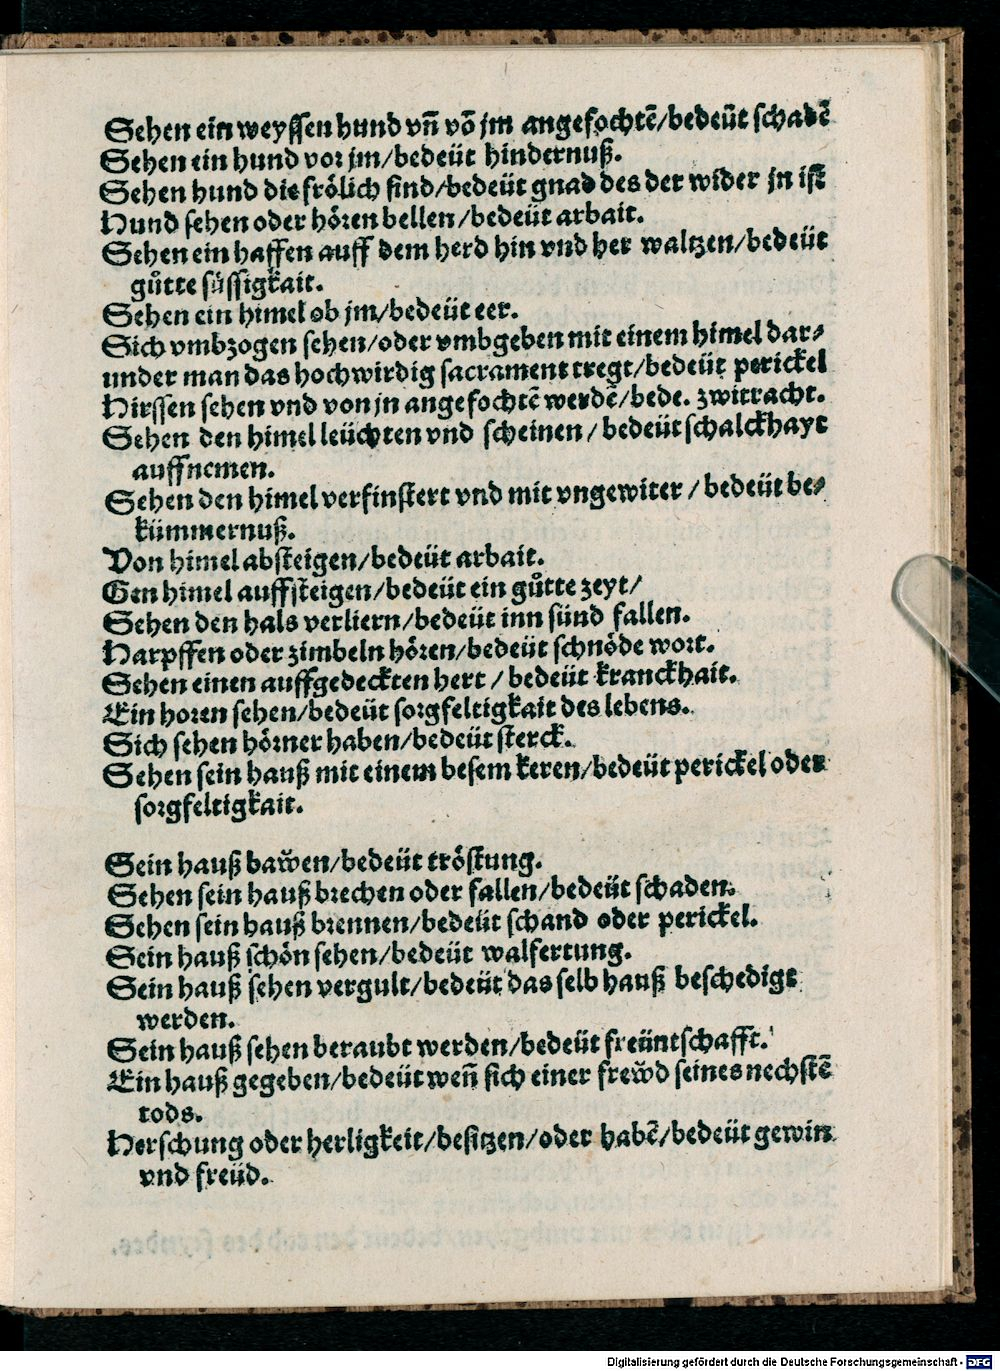 Sehen ein weyssen hund vn̄ võ jm angefochtẽ/bedeüt schadẽ
Sehen ein hund vor jm/bedeüt hindernuß.
Sehen hund die frölich sind/bedeüt gnad des der wider jn ist
Hund sehen oder hören bellen/bedeüt arbait.
Sehen ein haffen auff dem herd hin vnd her waltzen/bedeüt
gůtte süssigkait.
Sehen ein himel ob jm/bedeüt eer.
Sich vmbzogen sehen/oder vmbgeben mit einem himel dar⸗
under man das hochwirdig sacrament tregt/bedeüt perickel
Hirssen sehen vnd von jn angefochtẽ werdẽ/bede. zwitracht.
Sehen den himel leüchten vnd scheinen/bedeüt schalckhayt
auffnemen.
Sehen den himel verfinstert vnd mit vngewiter/bedeüt be⸗
kümmernuß.
Von himel absteigen/bedeüt arbait.
Gen himel auffsteigen/bedeüt ein gůtte zeyt/
Sehen den hals verliern/bedeüt inn sünd fallen.
Harpffen oder zimbeln hören/bedeüt schnöde wort.
Sehen einen auffgedeckten hert/bedeüt kranckhait.
Ein horen sehen/bedeüt sorgfeltigkait des lebens.
Sich sehen hörner haben/bedeüt sterck.
Sehen sein hauß mit einem besem keren/bedeüt perickel oder
sorgfeltigkait.
Sein hauß baw̃en/bedeüt tröstung.
Sehen sein hauß brechen oder fallen/bedeüt schaden.
Sehen sein hauß brennen/bedeüt schand oder perickel.
Sein hauß schön sehen/bedeüt walfertung.
Sein hauß sehen vergult/bedeüt das selb hauß beschedigt
werden.
Sein hauß sehen beraubt werden/bedeüt freüntschafft.
Ein hauß gegeben/bedeüt weñ sich einer frew̃d seines nechstẽ
tods.
Herschung oder herligkeit/besitzen/oder habẽ/bedeüt gewin
vnd freüd.
Digitalisierung gefördert durch die Deutsche Forschungsgemeinschaft - DFG